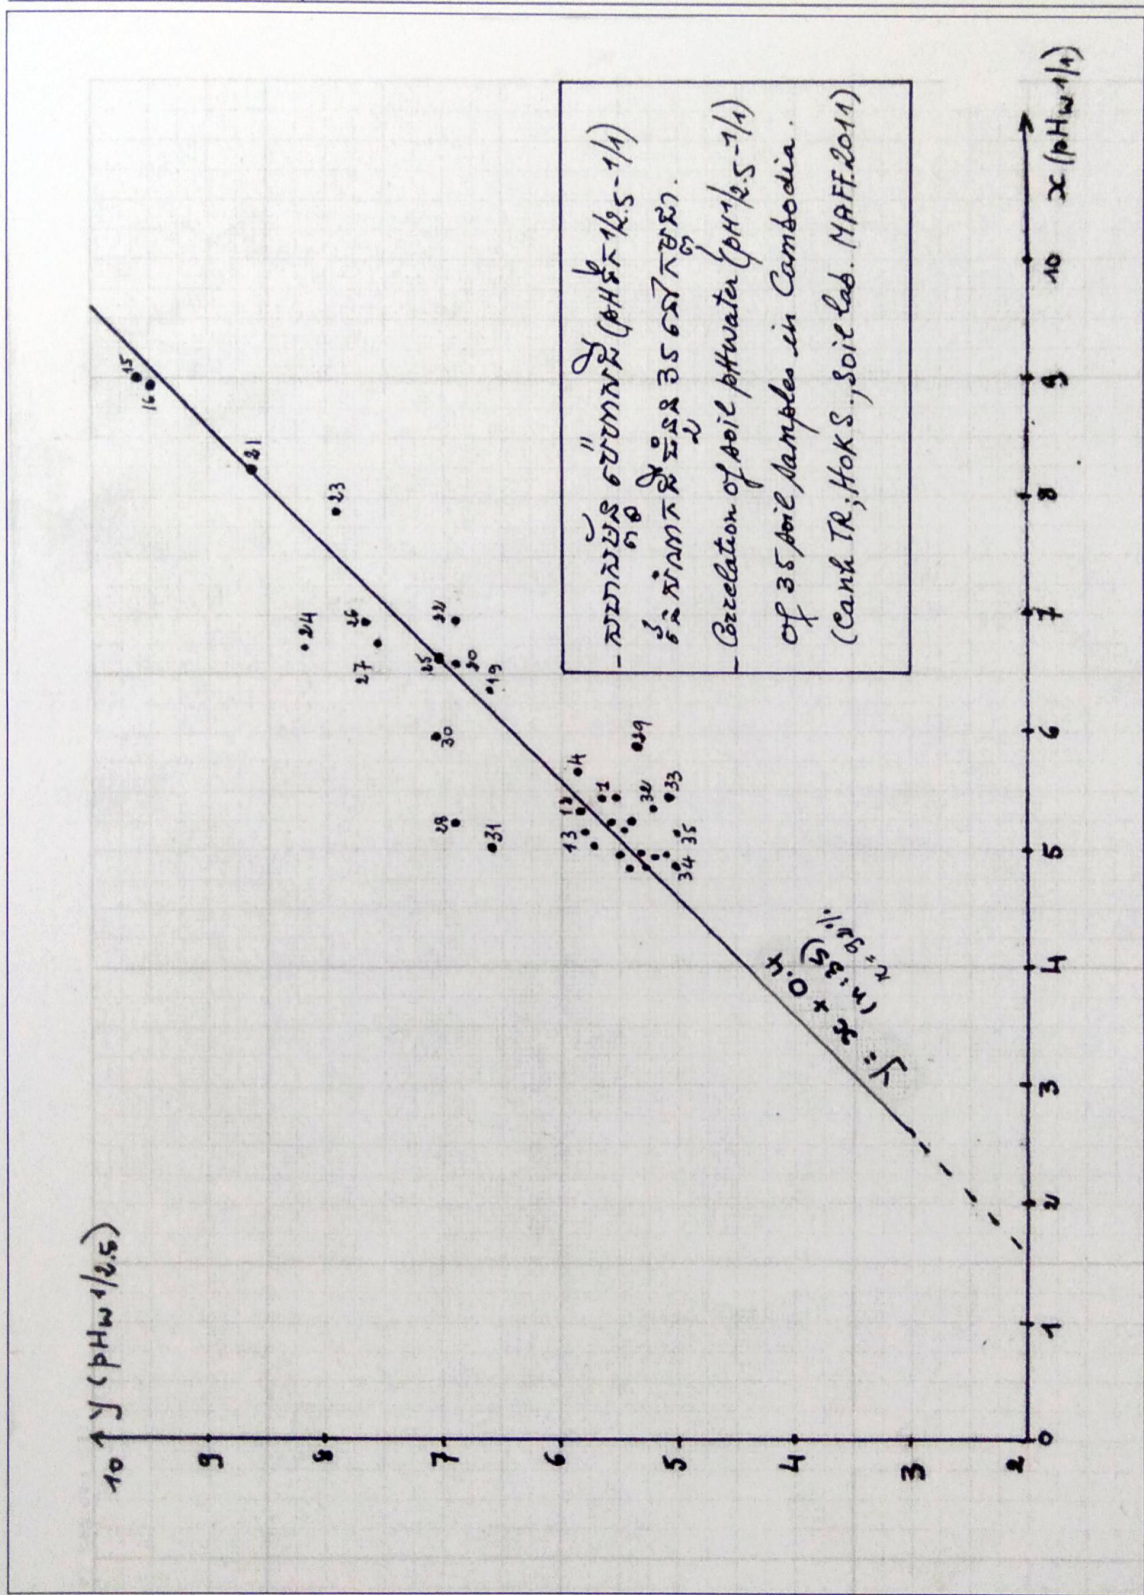 y (pHw 1/2.5)
10
9
8
7
6
5
4
3
2
0
1
2
3
4
5
6
7
8
9
10
x (pHw 1/1)
15
16
21
23
24
26
27
22
25
20
19
30
28
31
29
4
12
13
1
32
33
34
35
y = x + 0.4
(n = 35)
- សហសម្ព័ន្ធ ប៉េហាសដី (pHទឹក 1/2.5-1/1)
នៃសំណាកដី ចំនួន 35 នៅកម្ពុជា.
- Correlation of soil pHwater (pH 1/2.5-1/1)
of 35 soil samples in Cambodia.
(Canh TR; HOK S., Soil lab. MAFF.2011)